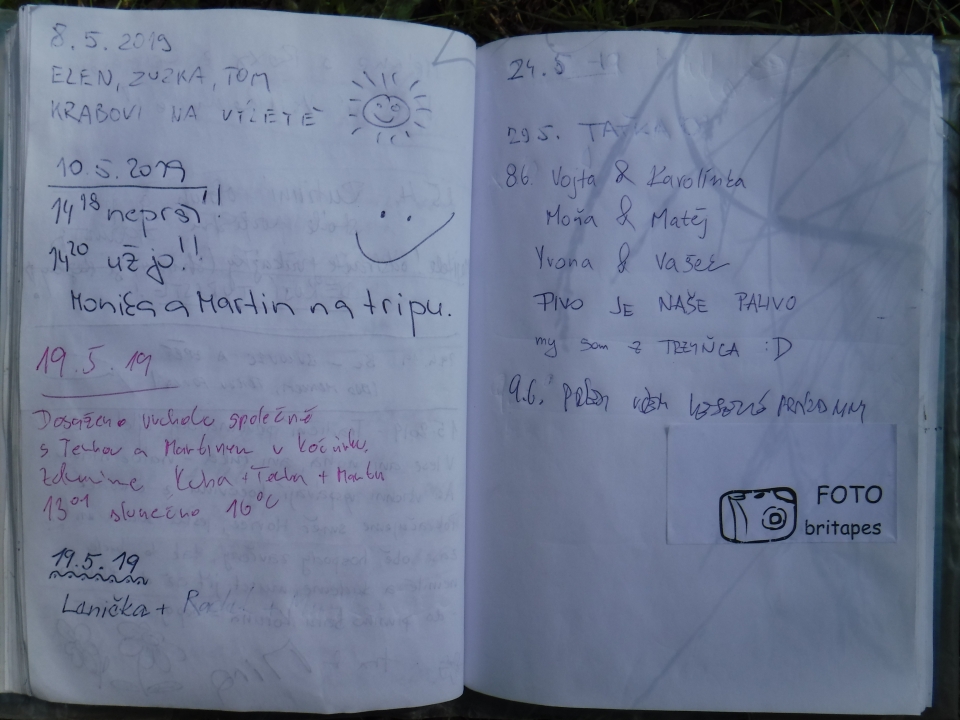 8.5.2019
ELEN, ZUZKA, TOM
KRABOVI NA VÝLETĚ
10.5.2019
14 18 neprší!!
14 20 už jo!!
Monička a Martin na tripu.
19.5.19
Dosaženo vrcholu společně
s Terkou a Martinem v kočárku.
Zdravíme Kuba + Terka + Martin
13 01 slunečno 16°C
19.5.19
Lanička +
24.5
29.5. TAŤKA
8.6. Vojta & Karolínka
Moňa & Matěj
Yvona & Vašek
PIVO JE NAŠE PALIVO
my som z TRZYŃCA :D
9.6.
FOTO
britapes